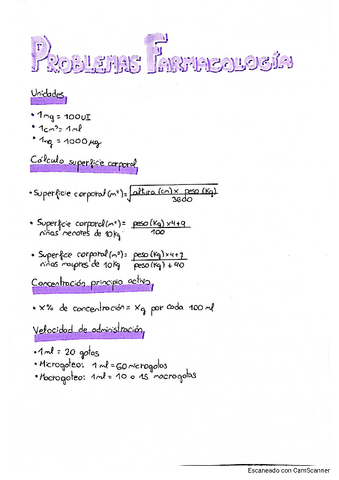 PROBLEMAS FARMACOLOGÍA
Unidades
• 1mg = 100UI
• 1cm³ = 1ml
• 1mg = 1000µg
Cálculo superficie corporal
• Superficie corporal (m²) = √ altura (cm) x peso (Kg)
3600
• Superficie corporal (m²) = peso (Kg) x 4 + 9
niños menores de 10Kg 100
• Superficie corporal (m²) = peso (Kg) x 4 + 7
niños mayores de 10Kg peso (Kg) + 90
Concentración principio activo
• X% de concentración = Xg por cada 100 ml
Velocidad de administración
• 1ml = 20 gotas
• Microgoteo: 1ml = 60 microgotas
• Macrogoteo: 1ml = 10 o 15 macrogotas
Escaneado con CamScanner